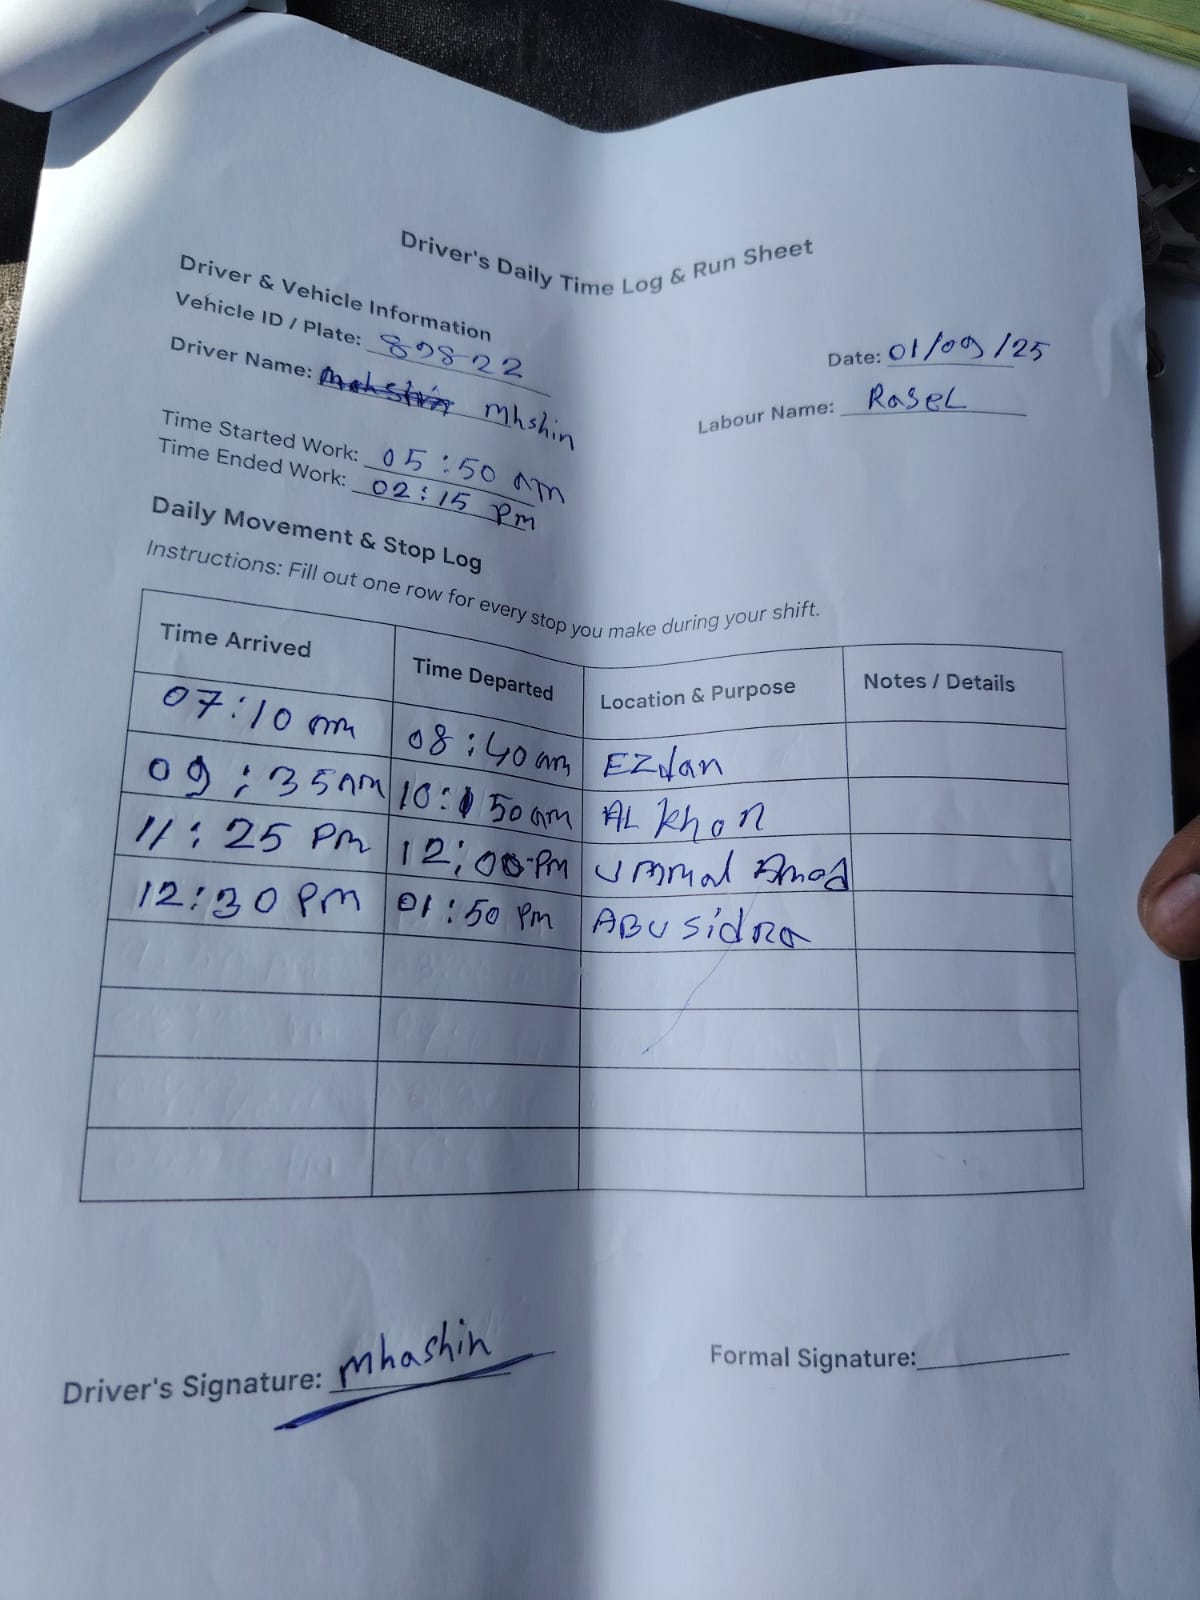 Driver's Daily Time Log & Run Sheet
Driver & Vehicle Information
Vehicle ID / Plate: 89822
Date: 01/09/25
Driver Name: mhshin
Labour Name: RaseL
Time Started Work: 05:50 am
Time Ended Work: 02:15 Pm
Daily Movement & Stop Log
Instructions: Fill out one row for every stop you make during your shift.
Time Arrived Time Departed Location & Purpose Notes / Details
07:10 am 08:40 am EZdan
09:35 AM 10:50 am AL khor
11:25 PM 12:00 PM Ummal Amad
12:30 PM 01:50 Pm ABU sidra
Driver's Signature: mhashin
Formal Signature: